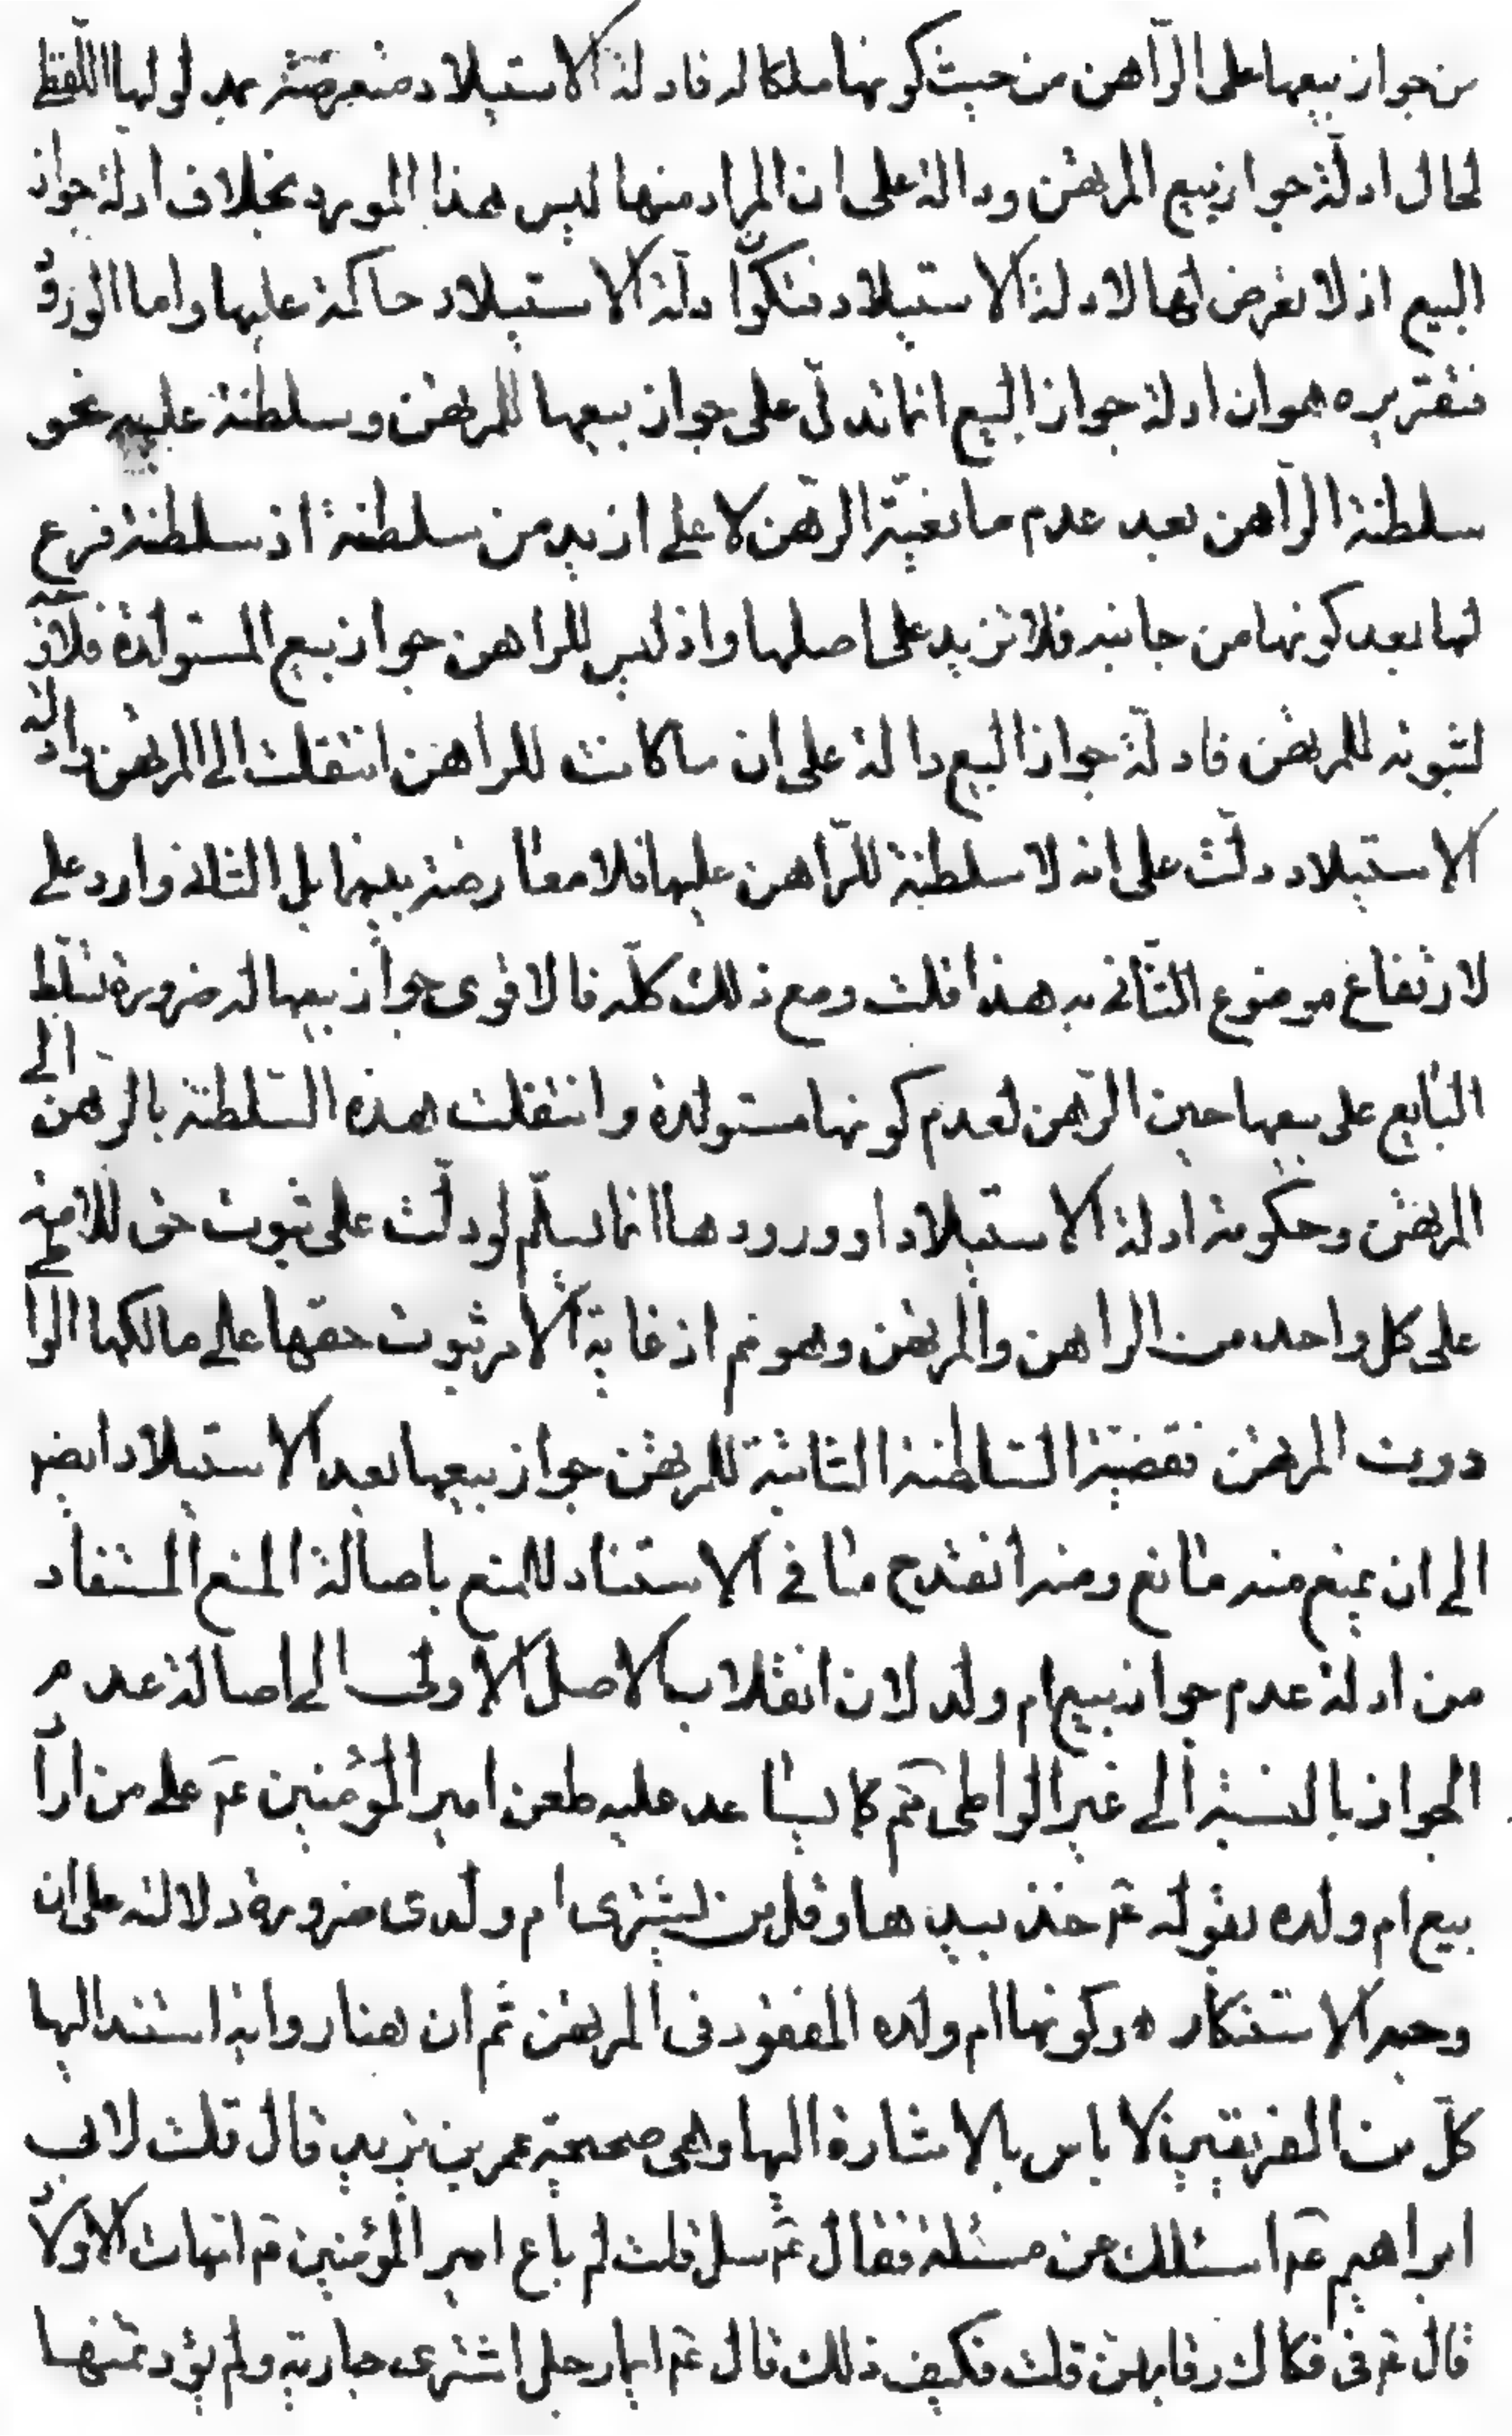 من جواز بيعها على الرّاهن من حيث كونها ملكا له فادلة الاستيلاد متعرضة بمدلولها اللفظ
لحال ادلّة جواز بيع المرتهن ودالة على ان المراد منها ليس هذا المورد بخلاف ادلة جواز
البيع اذ لا تعرض لها لادلة الاستيلاد فتكون ادلّة الاستيلاد حاكمة عليها واما الورود
فتقريره هو ان ادلة جواز البيع انما تدلّ على جواز بيعها للمرتهن وسلطنة عليه نحو
سلطنة الرّاهن بعد عدم مانعيّة الرّهن لا على ازيد من سلطنة اذ سلطنة فرع
لها بعد كونها من جانبه فلا تزيد على اصلها واذ ليس للراهن جواز بيع المستولدة فلا
لثبوته للمرتهن فادلّة جواز البيع دالة على ان ما كانت للراهن انتقلت الى المرتهن وادلة
الاستيلاد دلّت على انه لا سلطنة للرّاهن عليها فلا معارضة بينهما بل الثانى وارد على
لارتفاع موضوع الثّانى به هذا قلت ومع ذلك كلّه فالاقوى جواز بيعها له ضرورة تسلّط
البايع على بيعها حين الرّهن لعدم كونها مستولدة وانتقلت هذه السّلطنة بالرّهن الى
المرتهن وحكومة ادلة الاستيلاد او ورودها انما يسلّم لو دلّت على ثبوت حق للامة
على كل واحد من الراهن والمرتهن وهو مم اذ غاية الامر ثبوت حقها على مالكها الوا
دون المرتهن فقضيّة السّلطنة الثابتة للمرتهن جواز بيعها بعد الاستيلاد ايضا
الى ان يمنع منه مانع ومنه انقدح ما فى الاستناد للمنع باصالة المنع المستفاد
من ادلة عدم جواز بيع ام ولد لان انقلاب الاصل الاولى الى اصالة عدم
الجواز بالنسبة الى غير الواطى مم كما يساعد عليه طعن امير المؤمنين عم على من اراد
بيع ام ولده بقوله عم خذ بيدها وقل من يشترى ام ولدى ضرورة دلالته على ان
وجه الاستنكار هو كونها ام ولده المفقود فى المرتهن ثم ان هنا رواية استند اليها
كلّ من الفريقين لا باس بالاشارة اليها وهى صحيحة عمر بن يزيد قال قلت لابى
ابراهيم عم اسئلك عن مسئلة فقال عم سل قلت لم باع امير المؤمنين عم امهات الاولاد
قال عم فى فكاك رقابهن قلت فكيف ذلك قال عم ايما رجل اشترى جارية ولم يؤد ثمنها